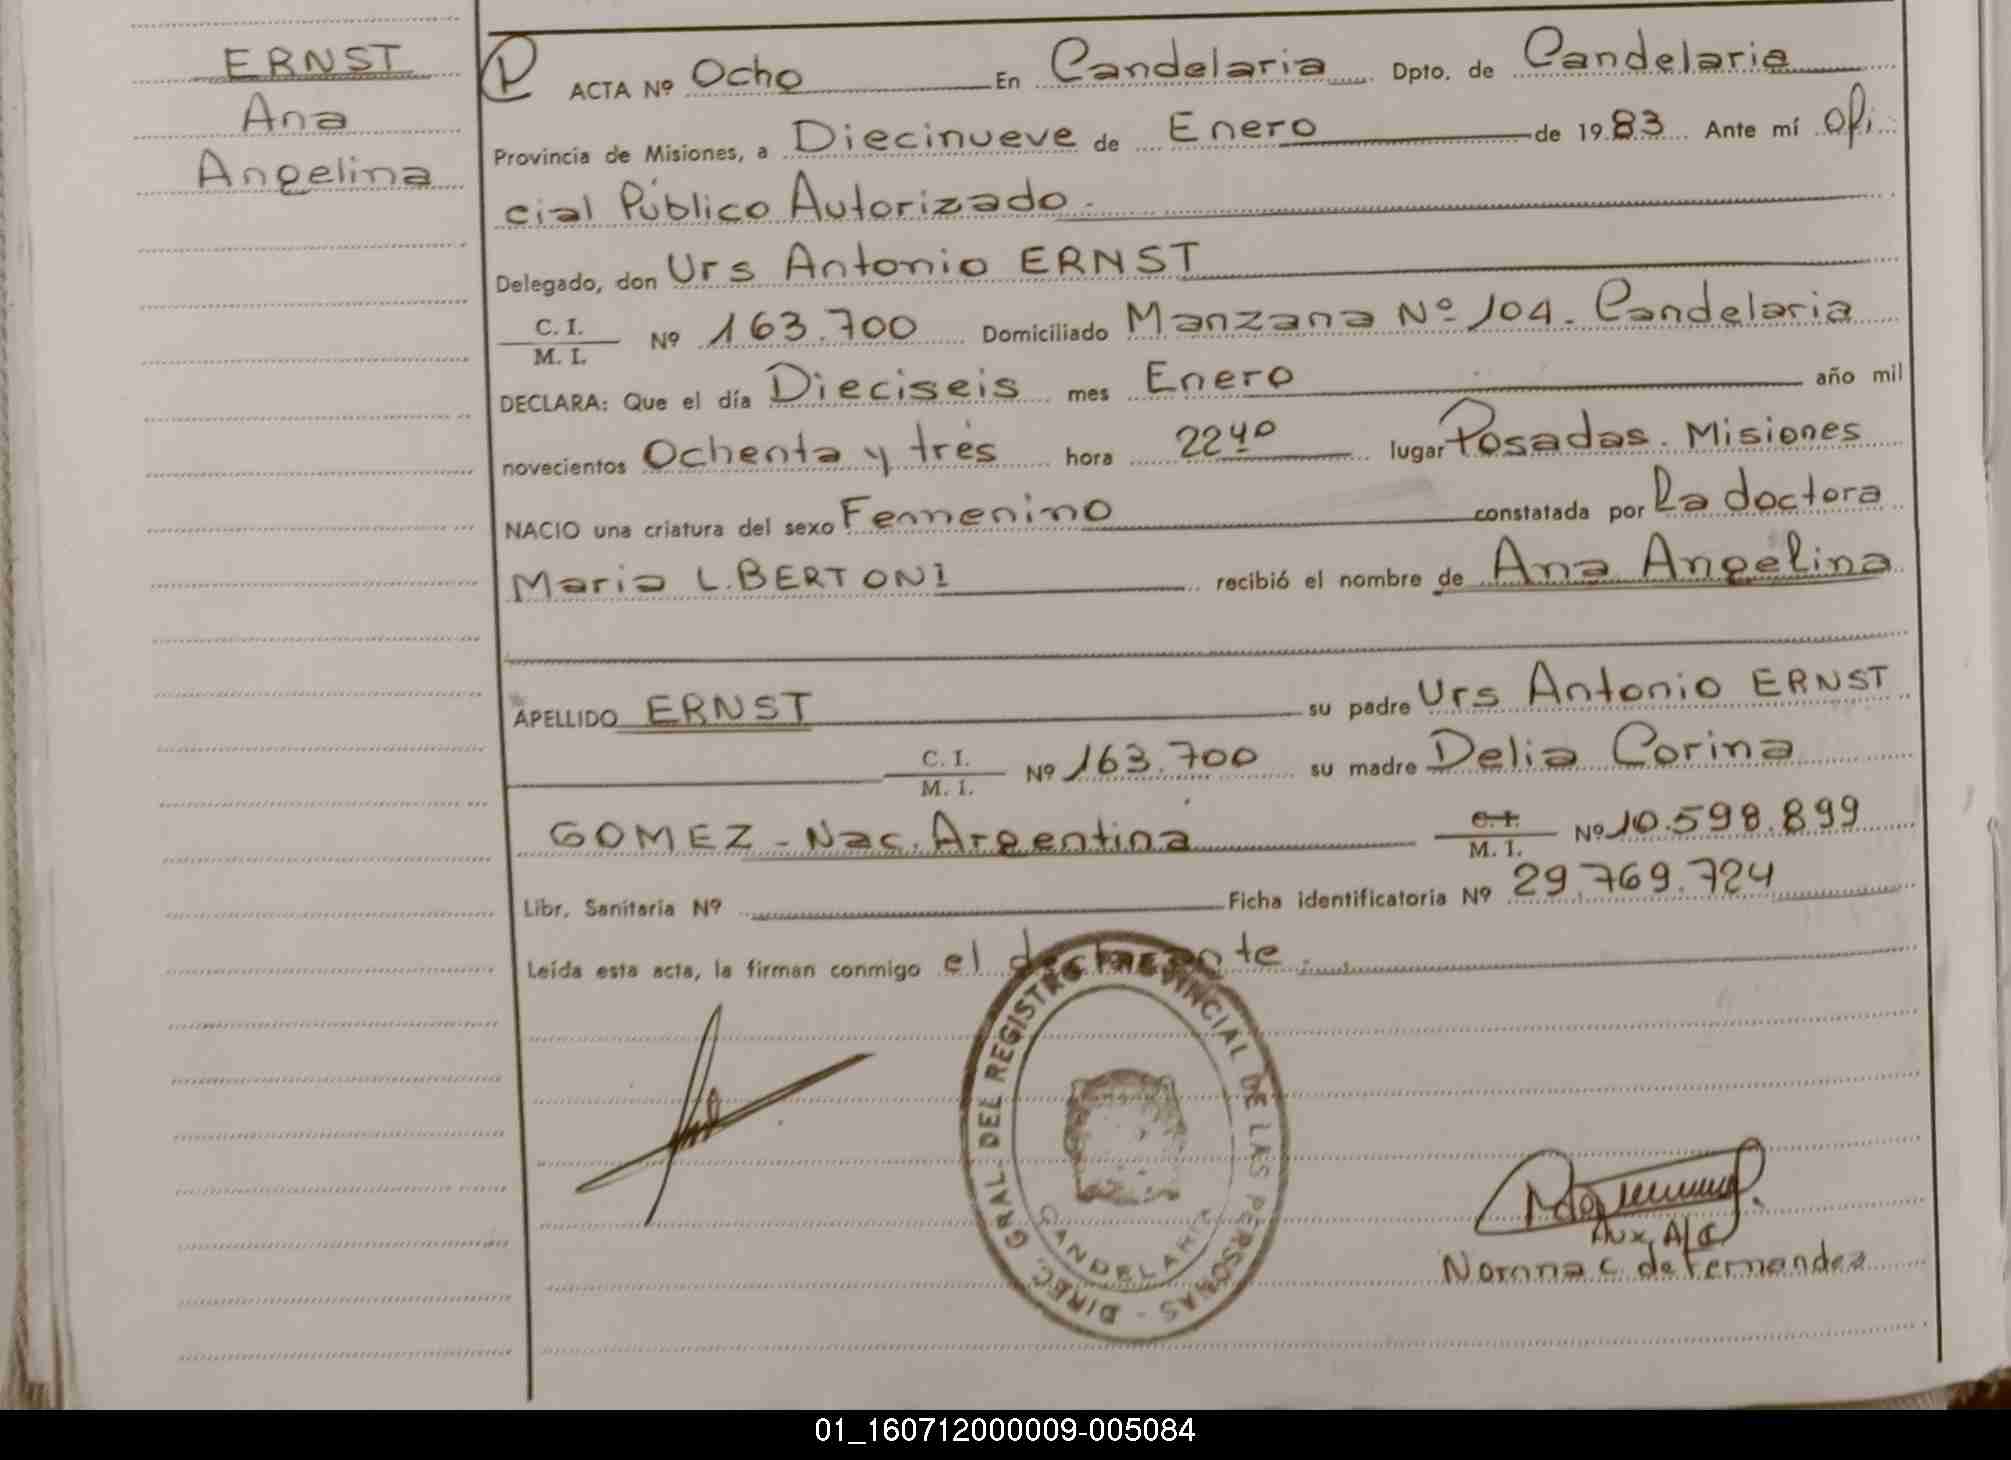 ERNST
Ana
Angelina
P ACTA Nº Ocho En Candelaria Dpto. de Candelaria
Provincia de Misiones, a Diecinueve de Enero de 1983 Ante mí Ofi
cial Público Autorizado.
Delegado, don Urs Antonio ERNST
C. I.
M. I. Nº 163.700 Domiciliado Manzana Nº 104. Candelaria
DECLARA: Que el día Dieciseis mes Enero año mil
novecientos Ochenta y trés hora 22 40 lugar Posadas. Misiones
NACIO una criatura del sexo Femenino constatada por La doctora
Maria L. BERTONI recibió el nombre de Ana Angelina
APELLIDO ERNST su padre Urs Antonio ERNST
C. I.
M. I. Nº 163.700 su madre Delia Corina
GOMEZ - Nac. Argentina C. I.
M. I. Nº 10.598.899
Libr. Sanitaria Nº Ficha identificatoria Nº 29.769.724
Leída esta acta, la firman conmigo el declarante.
DIREC. GRAL. DEL REGISTRO PROVINCIAL DE LAS PERSONAS -
CANDELARIA
Aux. A/C
Norma C. de Fernandez
01_160712000009-005084